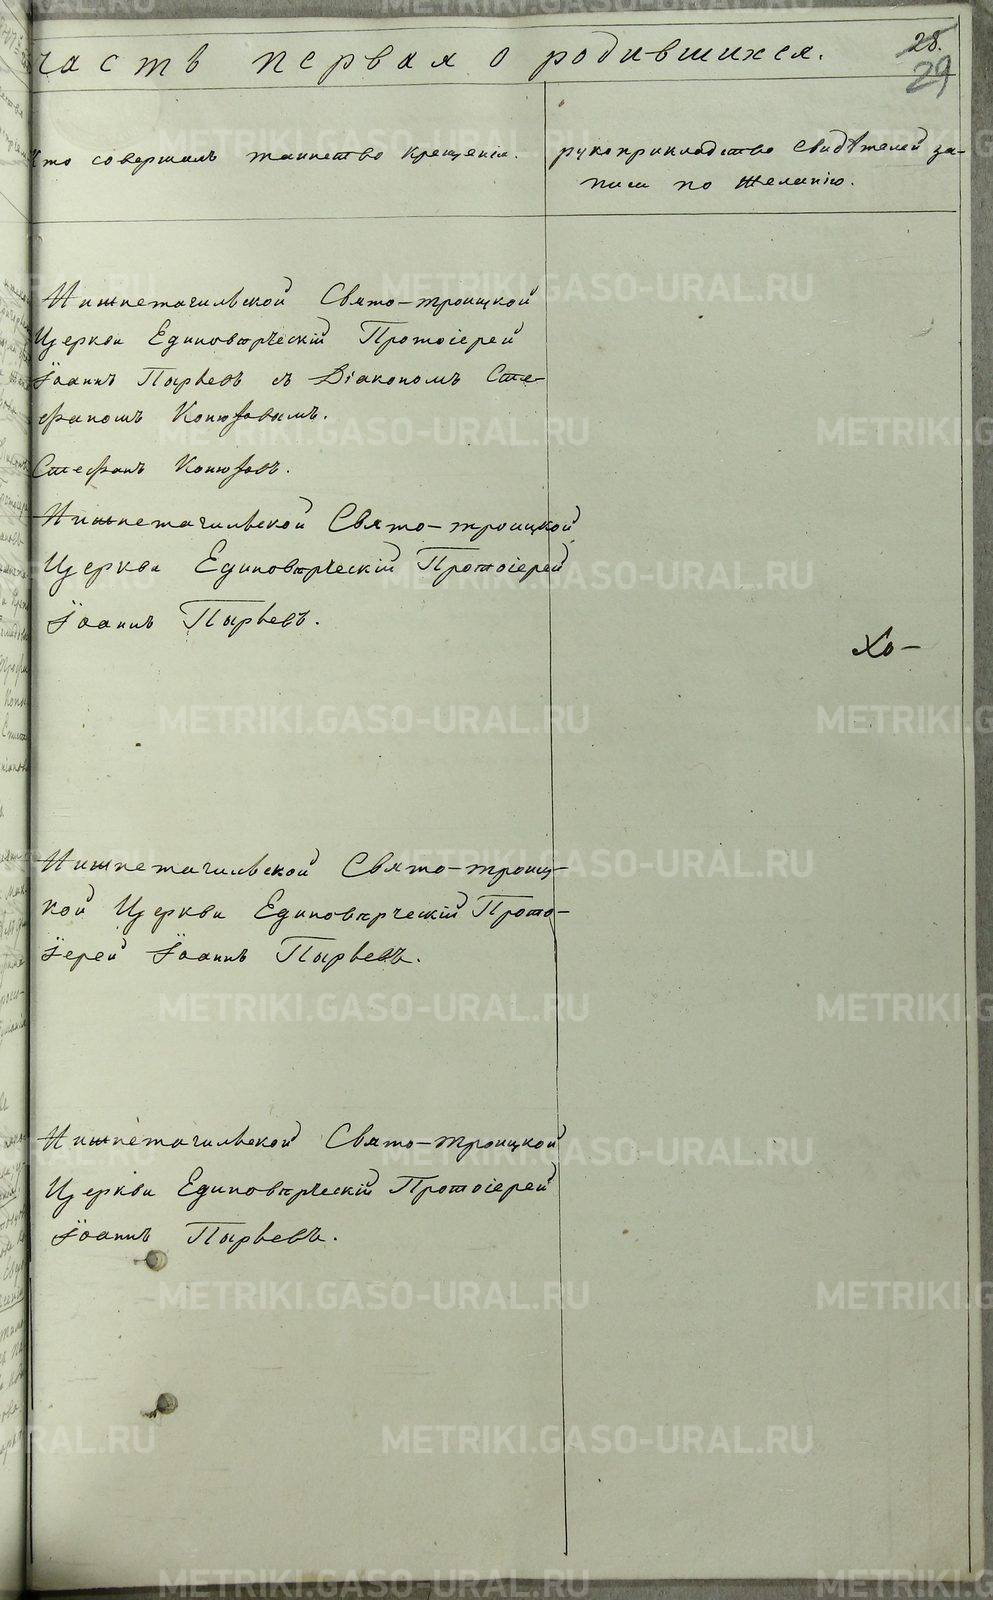 часть первая о родившихся.
28.
29
Кто совершалъ таинство крещенія.
рукоприкладство свидѣтелей за-
писи по желанію.
Нижнетагильской Свято-троицкой
Церкви Единовѣрческій Протоіерей
Іоаннъ Пырьевъ съ Діакономъ Сте-
фаномъ Конюховымъ.
Стефанъ Конюховъ.
Нижнетагильской Свято-троицкой
Церкви Единовѣрческій Протоіерей
Іоаннъ Пырьевъ.
Хо-
Нижнетагильской Свято-троиц-
кой Церкви Единовѣрческій Прото-
іерей Іоаннъ Пырьевъ.
Нижнетагильской Свято-троицкой
Церкви Единовѣрческій Протоіерей
Іоаннъ Пырьевъ.
METRIKI.GASO-URAL.RU